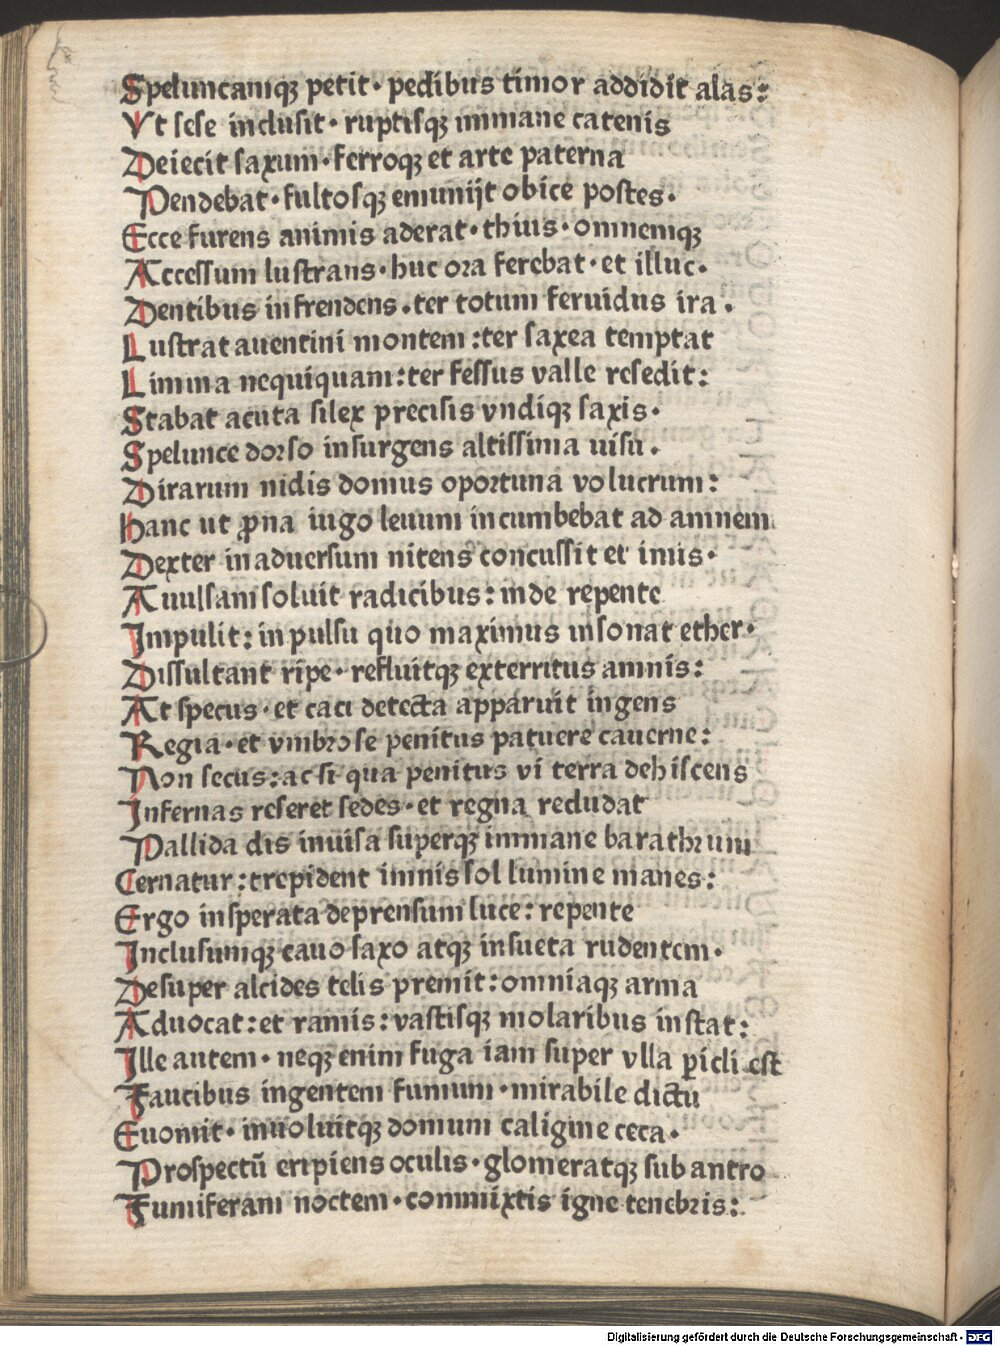 Speluncamqꝫ petit · pedibus timor addidit alas:
Vt sese inclusit · ruptisqꝫ immane catenis
Deiecit saxum · ferroqꝫ et arte paterna
Pendebat · fultosqꝫ emunijt obice postes.
Ecce furens animis aderat · thius · omnemqꝫ
Accessum lustrans · huc ora ferebat · et illuc.
Dentibus infrendens · ter totum feruidus ira.
Lustrat auentini montem: ter saxea temptat
Limina nequiquam: ter fessus valle resedit:
Stabat acuta silex precisis vndiqꝫ saxis.
Spelunce dorso insurgens altissima uisu.
Dirarum nidis domus oportuna volucrum:
Hanc ut ꝓna iugo leuum incumbebat ad amnem
Dexter in aduersum nitens concussit et imis.
Auulsam soluit radicibus: inde repente
Impulit: in pulsu quo maximus insonat ether.
Dissultant ripe · refluitqꝫ exterritus amnis:
At specus · et caci detecta apparuit ingens
Regia · et vmbrose penitus patuere cauerne:
Non secus: ac si qua penitus vi terra dehiscens
Infernas reseret sedes · et regna recludat
Pallida dis inuisa superqꝫ immane barathrum
Cernatur: trepident inmissol lumine manes:
Ergo insperata deprensum luce: repente
Inclusumqꝫ cauo saxo atqꝫ insueta rudentem.
Desuper alcides telis premit: omniaqꝫ arma
Aduocat: et ramis: vastisqꝫ molaribus instat:
Ille autem · neqꝫ enim fuga iam super vlla ꝑicli est
Faucibus ingentem fumum · mirabile dictu
Euomit · inuoluitqꝫ domum caligine ceca.
Prospectū eripiens oculis · glomeratqꝫ sub antro
Fumiferam noctem · commixtis igne tenebris:
Digitalisierung gefördert durch die Deutsche Forschungsgemeinschaft - DFG